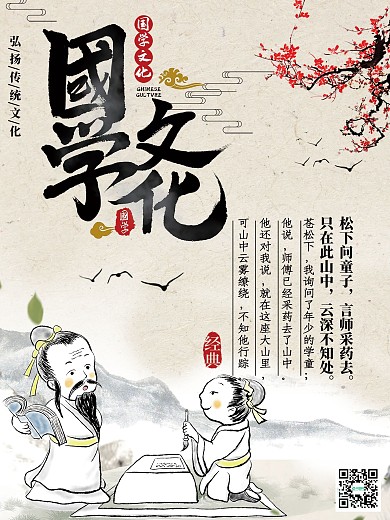 弘/扬/传/统/文/化
國学文化
国学文化
CHINESE
CULTURE
國学
松下问童子，言师采药去。
只在此山中，云深不知处。
苍松下，我询问了年少的学童；
他说，师傅已经采药去了山中。
他还对我说，就在这座大山里，
可山中云雾缭绕，不知他行踪
经典